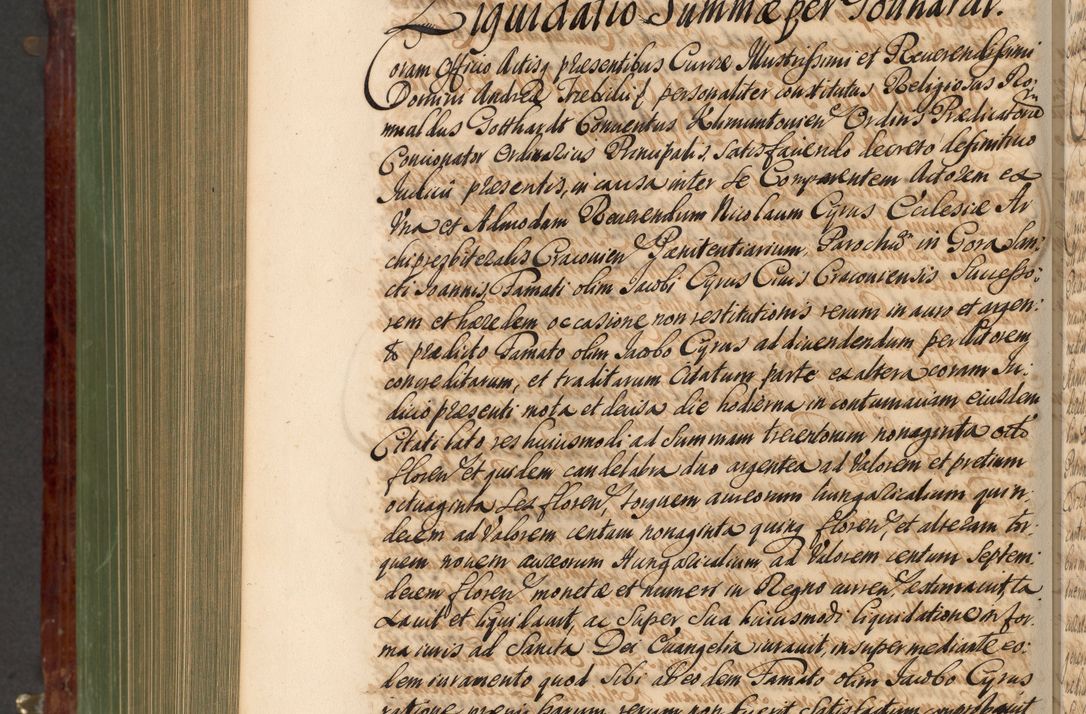 Liquidatio Summæ per Gotthardt.
Coram Officio Actisq præsentibus Curiæ Illustrissimi et Reuerendissimi
Domini Andreæ Trebickÿ personaliter constitutus Religiosus Ro:
mualdus Gotthardt Conuentus Klimuntouien Ordinis Prædicatorū
Concionator Ordinarius Principalis, satisfaciendo decreto definitiuo
Judicii præsentis, in causa inter se Comparentem Actorem ex
Vna et Admodum Reuerendum Nicolaum Cyrus Ecclesiæ Ar
chipræsbiteralis Cracouien Pænitentiarium, Parochū in Gora San:
cti Joannis, Famati olim Jacobi Cyrus Ciuis Cracouiensis Successo:
rem et hæredem occasione non restitutionis rerum in auro et argen:
to prædicto Famato olim Jacobo Cyrus ad diuendendum per Actorem
concreditarum, et traditarum Citatum parte ex altera coram Ju:
dicio præsenti mota et decisa die hodierna in contumaciam eiusdem
Citati lato res huiusmodi ad Summam trecentorum nonaginta octo
floren et quidem candelabra duo argentea ad Valorem et pretium
octuaginta sex floren, torquem aureorum hungaricalium quin:
decem ad Valorem centum nonaginta quinq floren, et alteram tor:
quem nouem aureorum Hungaricalium ad Valorem centum Septem:
decem floren monetæ et numeri in Regno curren, æstimauit, ta
xauit et liquidauit, ac super sua huiusmodi liquidatione in for:
ma iuris ad Sancta Dei Euangelia iurauit, insuper mediante eo:
dem iuramento quod sibi ab eodem Famato olim Jacobo Cyrus
ratione præmissarum rerum non fuerit satisfactum comprobauit